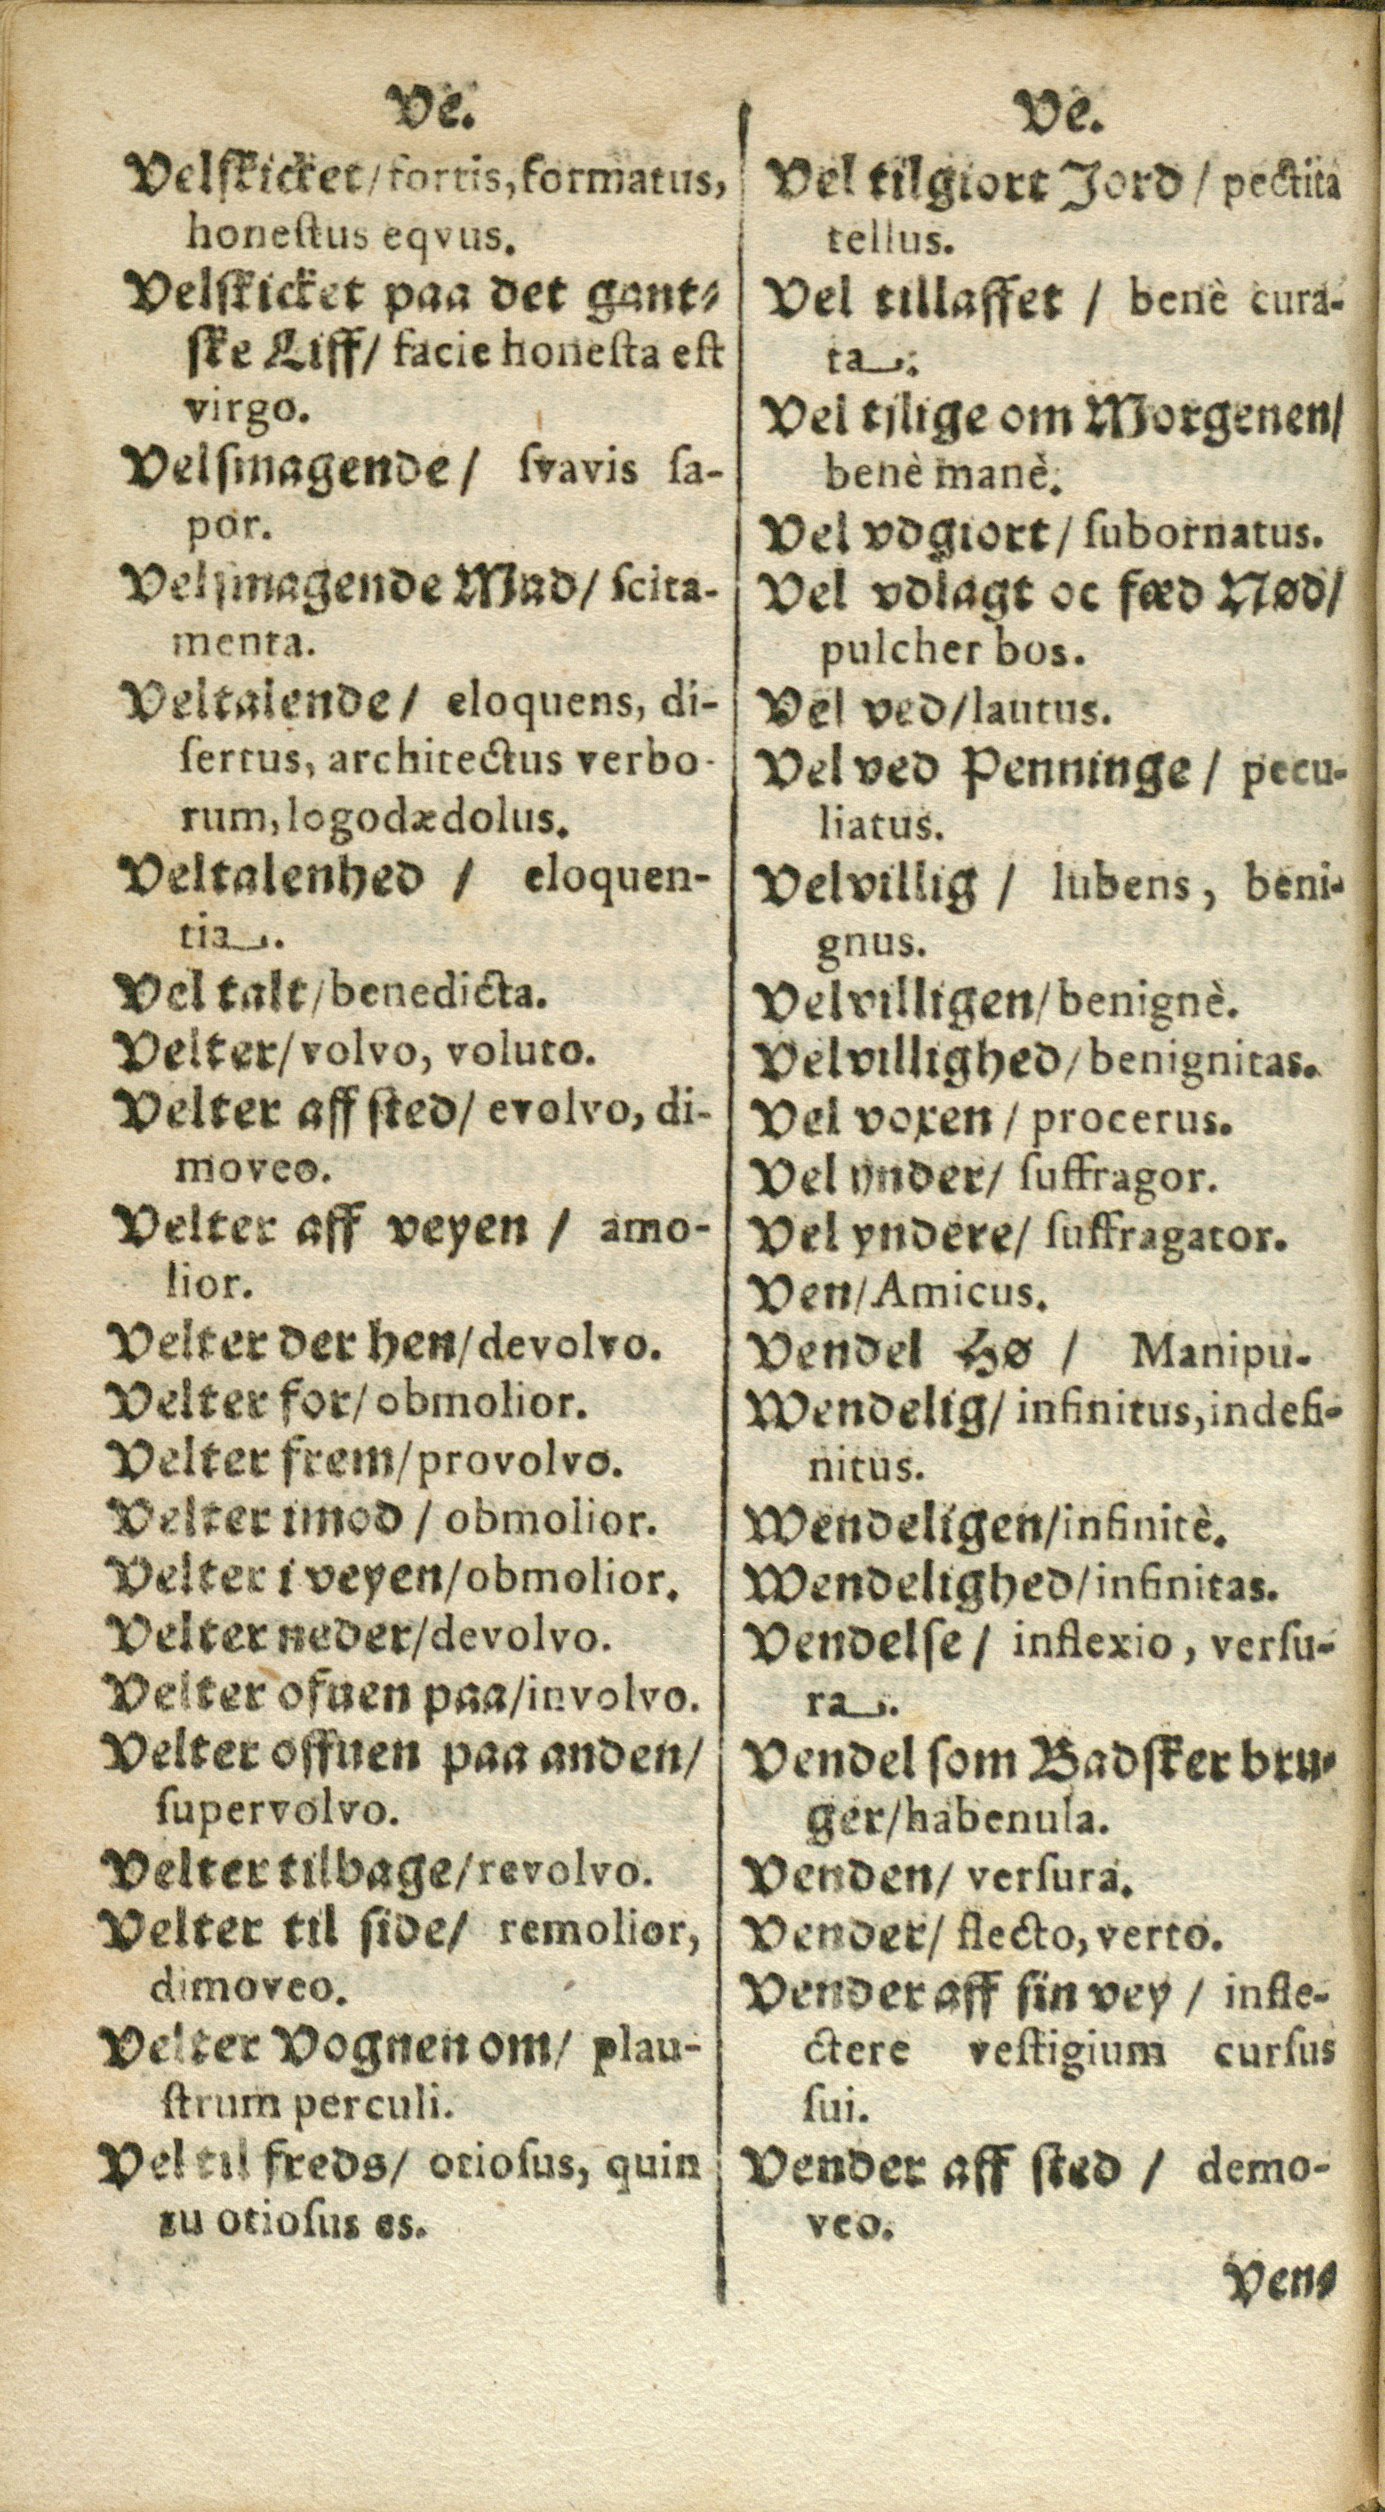 Ve.
Velſkicket/fortis, formatus,
honeſtus eqvus.
Velſkicket paa det gant⸗
ſke Liff/ facie honeſta eſt
virgo.
Velſmagende/ ſvavis ſa-
por.
Velſmagende Mad/ ſcita-
menta.
Veltalende/ eloquens, di-
ſertus, architectus verbo-
rum, logodædolus.
Veltalenhed / eloquen-
tia.
Vel talt/benedicta.
Velter/volvo, voluto.
Velter aff ſted/ evolvo, di-
moveo.
Velter aff veyen / amo-
lior.
Velter der hen/devolvo.
Velter for/ obmolior.
Velter frem/provolvo.
Velter imod / obmolior.
Velter i veyen/obmolior.
Velter neder/devolvo.
Velter ofuen paa/involvo.
Velter offuen paa anden/
ſupervolvo.
Velter tilbage/revolvo.
Velter til ſide/ remolior,
dimoveo.
Velter Vognen om/ plau-
ſtrum perculi.
Vel til freds/ otioſus, quin
tu otioſus es.
Ve.
Vel tilgiort Jord / pectita
tellus.
Vel tillaffet / benè cura-
ta.
Vel tjlige om Morgenen/
benè manè.
Vel vdgiort/ ſubornatus.
Vel vdlagt oc fæd Nød/
pulcher bos.
Vel ved/lautus.
Vel ved Penninge / pecu-
liatus.
Velvillig / lubens, beni-
gnus.
Velvilligen/benignè.
Velvillighed/benignitas.
Vel voxen / procerus.
Vel ynder/ ſuffragor.
Vel yndere/ ſuffragator.
Ven/Amicus.
Vendel Hø / Manipu-
Wendelig/ infinitus, indefi-
nitus.
Wendeligen/infinitè.
Wendelighed/infinitas.
Vendelſe / inflexio, verſu-
ra.
Vendel ſom Badſker bru⸗
ger/habenula.
Venden/ verſura.
Vender/ flecto, verto.
Vender aff ſin vey / infle-
ctere veſtigium curſus
ſui.
Vender aff ſted / demo-
veo.
Ven⸗